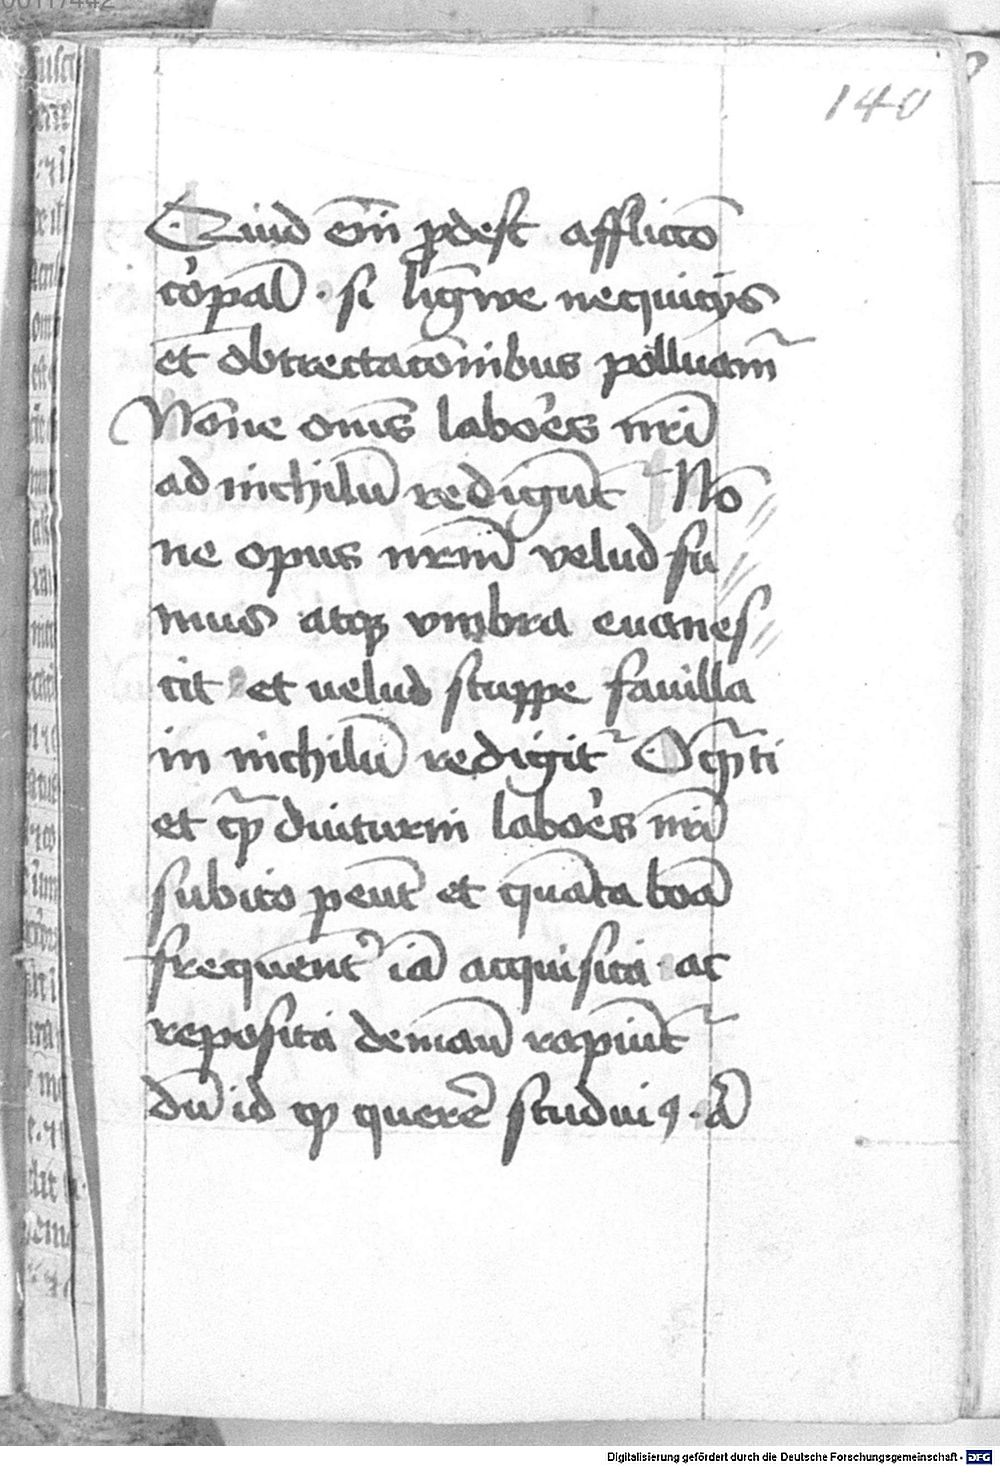 140
Quid em̄ ꝓdest afflictō
corꝑal̄ · si ligw̄e nequicijs
et obtrectacōnibus polluam̄
Nōne om̄s labores nr̄i
ad nichilū rediguntᷣ Nō
ne opus nr̄m velud fu
mus atqꝫ vmbra euanes
cit et velud stuppe fauilla
in nichilū redigitᷣ O qm̄ti
et qm̄ diuturni labores nr̄i
subito peūt et quāta boā
frequentᷣ iā acquisita ac
reposita demū rapiūtᷣ
dū id qꝫ querē̄ studuiꝰ · a
Digitalisierung gefördert durch die Deutsche Forschungsgemeinschaft - DFG